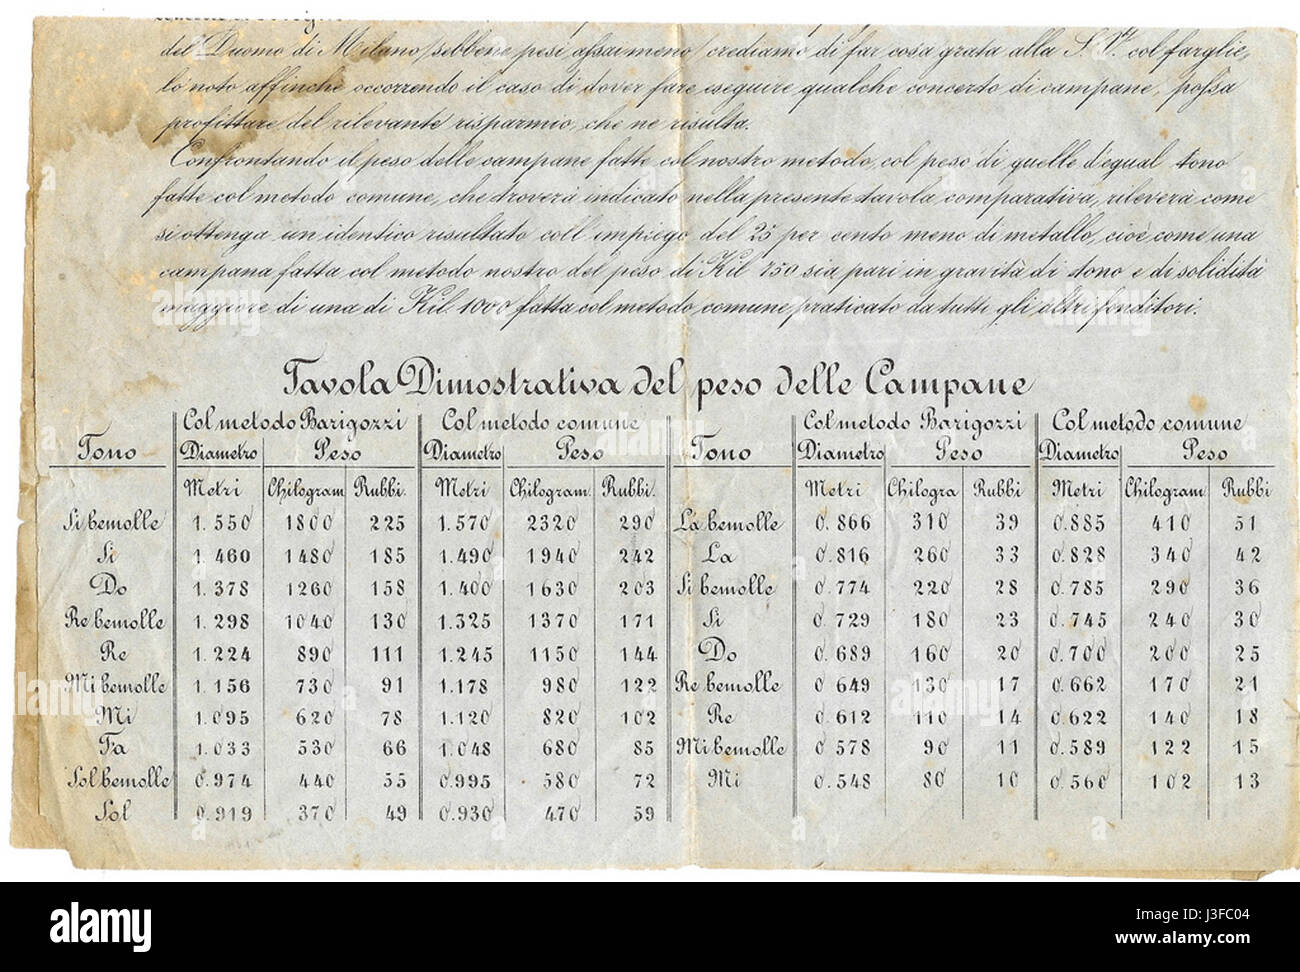 del Duomo di Milano, sebbene pesi assai meno, crediamo di far cosa grata alla S. Vª. col farglie,
lo noto affinchè occorrendo il caso di dover fare eseguire qualche concerto di campane, possa
profittare del rilevante risparmio, che ne risulta.
Confrontando il peso delle campane fatte col nostro metodo, col peso di quelle d'egual tono
fatte col metodo comune, che troverà indicato nella presente tavola comparativa, rileverà come
si ottenga un identico risultato coll'impiego del 25 per cento meno di metallo, cioè come una
campana fatta col metodo nostro del peso di Kil 750 sia pari in gravità di tono e di solidità
maggiore di una di Kil. 1000 fatta col metodo comune praticato da tutti gli altri fonditori.
Tavola Dimostrativa del peso delle Campane
Tono Col metodo Barigozzi Col metodo comune Tono Col metodo Barigozzi Col metodo comune
Diametro Peso Diametro Peso Diametro Peso Diametro Peso
Metri Chilogram Rubbi. Metri Chilogram. Rubbi. Metri Chilogra Rubbi Metri Chilogram Rubbi
Si bemolle 1.550 1800 225 1.570 2320 290 La bemolle 0.866 310 39 0.885 410 51
Si 1.460 1480 185 1.490 1940 242 La 0.816 260 33 0.828 340 42
Do 1.378 1260 158 1.400 1630 203 Si bemolle 0.774 220 28 0.785 290 36
Re bemolle 1.298 1040 130 1.325 1370 171 Si 0.729 180 23 0.745 240 30
Re 1.224 890 111 1.245 1150 144 Do 0.689 160 20 0.700 200 25
Mi bemolle 1.156 730 91 1.178 980 122 Re bemolle 0.649 130 17 0.662 170 21
Mi 1.095 620 78 1.120 820 102 Re 0.612 110 14 0.622 140 18
Fa 1.033 530 66 1.048 680 85 Mi bemolle 0.578 90 11 0.589 122 15
Sol bemolle 0.974 440 55 0.995 580 72 Mi 0.548 80 10 0.560 102 13
Sol 0.919 370 49 0.930 470 59
alamy
Image ID: J3FC04
www.alamy.com